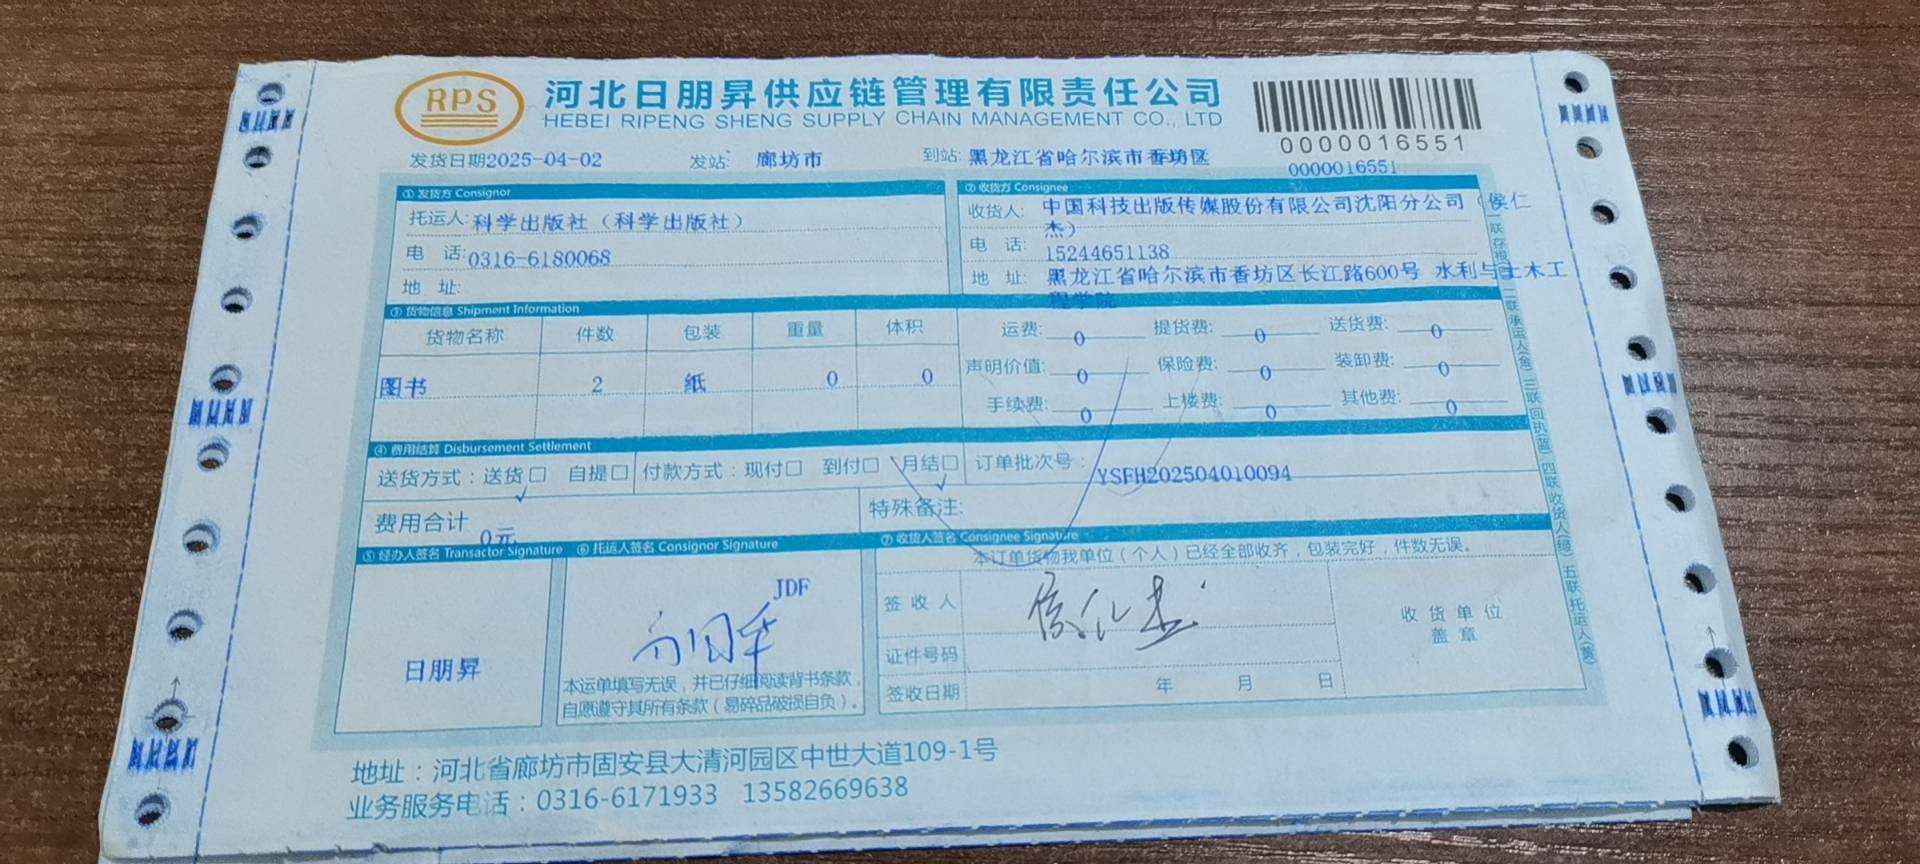 RPS
河北日朋昇供应链管理有限责任公司
HEBEI RIPENG SHENG SUPPLY CHAIN MANAGEMENT CO., LTD
0000016551
发货日期2025-04-02 发站: 廊坊市 到站: 黑龙江省哈尔滨市香坊区 0000016551
① 发货方 Consignor
托运人: 科学出版社（科学出版社）
电 话: 0316-6180068
地 址:
② 收货方 Consignee
收货人: 中国科技出版传媒股份有限公司沈阳分公司（侯仁
杰）
电 话: 15244651138
地 址: 黑龙江省哈尔滨市香坊区长江路600号 水利与土木工
程学院
③ 货物信息 Shipment Information
货物名称 件数 包装 重量 体积
图书 2 纸 0 0
运费: 0 提货费: 0 送货费: 0
声明价值: 0 保险费: 0 装卸费: 0
手续费: 0 上楼费: 0 其他费: 0
④ 费用结算 Disbursement Settlement
送货方式：送货□ 自提□ 付款方式：现付□ 到付□ 月结□ 订单批次号： YSFH202504010094
✓ ✓
费用合计 0元 特殊备注:
⑤ 经办人签名 Transactor Signature
日朋昇
⑥ 托运人签名 Consignor Signature
JDF
本运单填写无误，并已仔细阅读背书条款，
自愿遵守其所有条款（易碎品破损自负）。
⑦ 收货人签名 Consignee Signature
本订单货物我单位（个人）已经全部收齐，包装完好，件数无误。
签 收 人 侯仁杰
证件号码
签收日期 年 月 日
收 货 单 位
盖 章
二联承运人(金) 三联回执(蓝) 四联收货人(绿) 五联托运人(黄)
地址：河北省廊坊市固安县大清河园区中世大道109-1号
业务服务电话：0316-6171933 13582669638